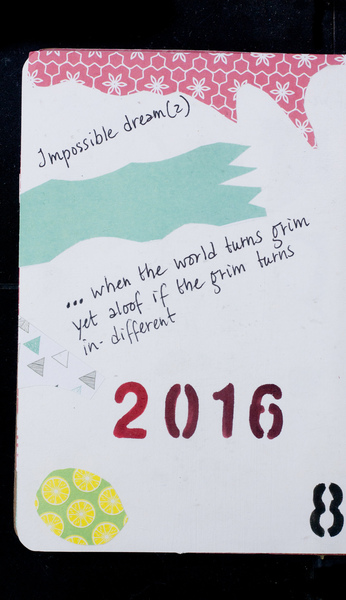 Impossible dream(2)
... when the world turns grim
yet aloof if the grim turns
in-different
2016
8